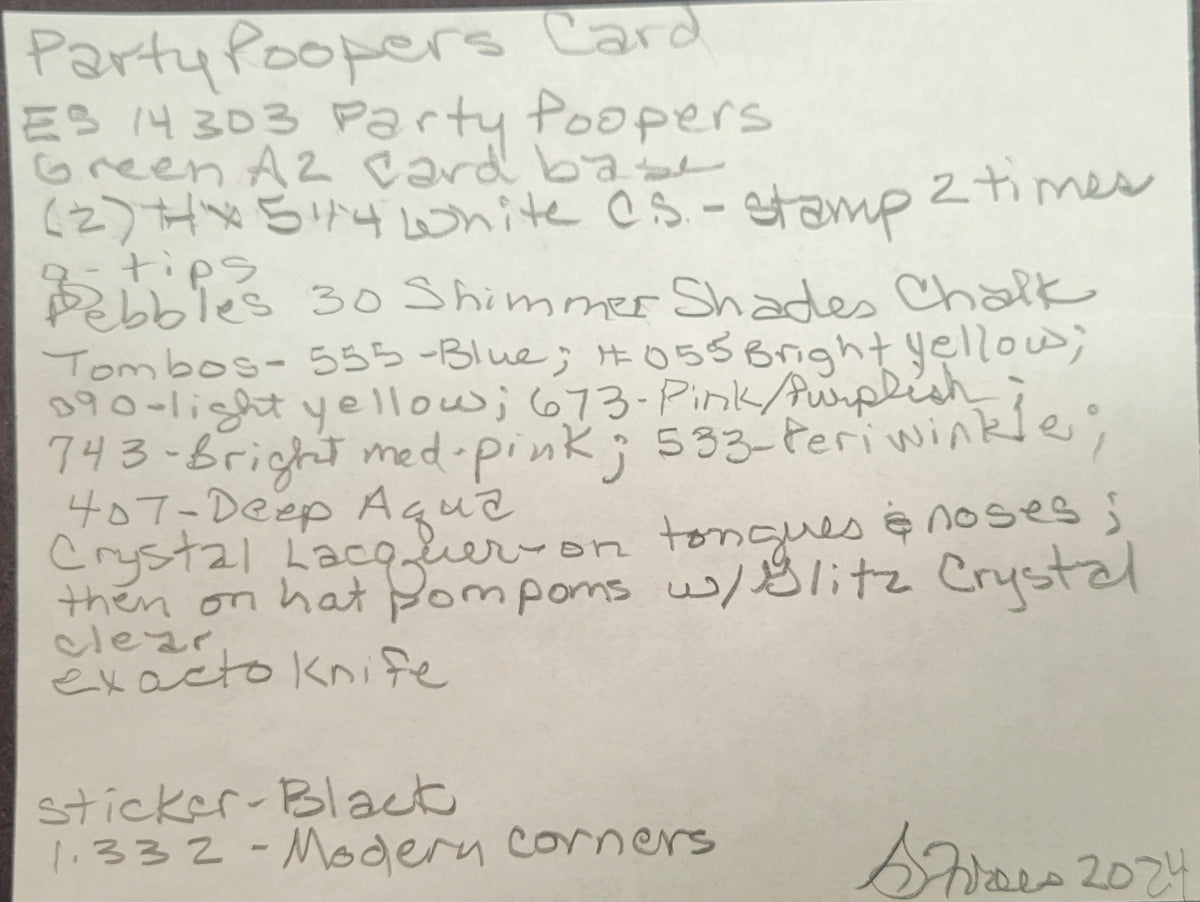 Party Poopers Card
ES 14303 Party Poopers
Green A2 Card base
(2) 4x 5 1/4 White C.S. - stamp 2 times
q-tips
Pebbles 30 Shimmer Shades Chalk
Tombos- 555-Blue; #055 Bright yellow;
090-light yellow; 673-Pink/Purplish;
743-Bright med-pink; 533-Periwinkle;
407-Deep Aqua
Crystal Lacquer-on tongues & noses;
then on hat pompoms w/Glitz Crystal
clear
exacto Knife
sticker-Black
1.332 - Modern corners
2024